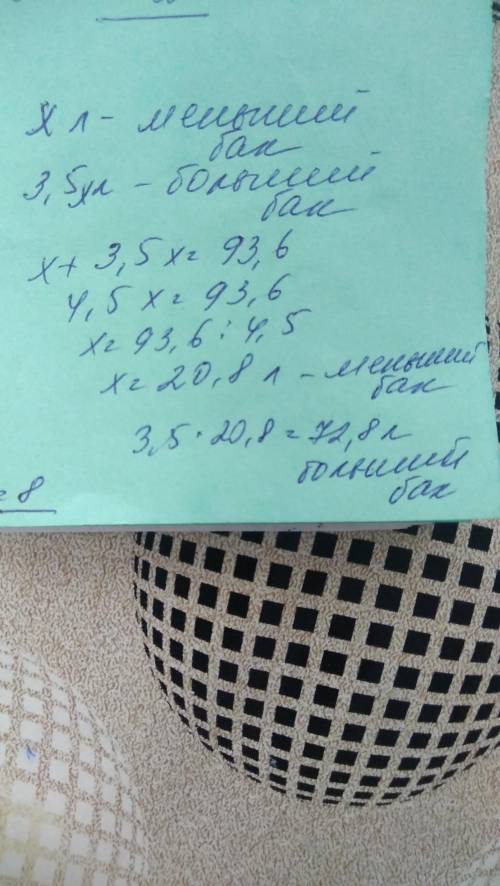 х л - меньший
бак
3,5х л - больший
бак
х + 3,5 х = 93,6
4,5 х = 93,6
х = 93,6 : 4,5
х = 20,8 л - меньший
бак
3,5 · 20,8 = 72,8 л
больший
бак
= 8